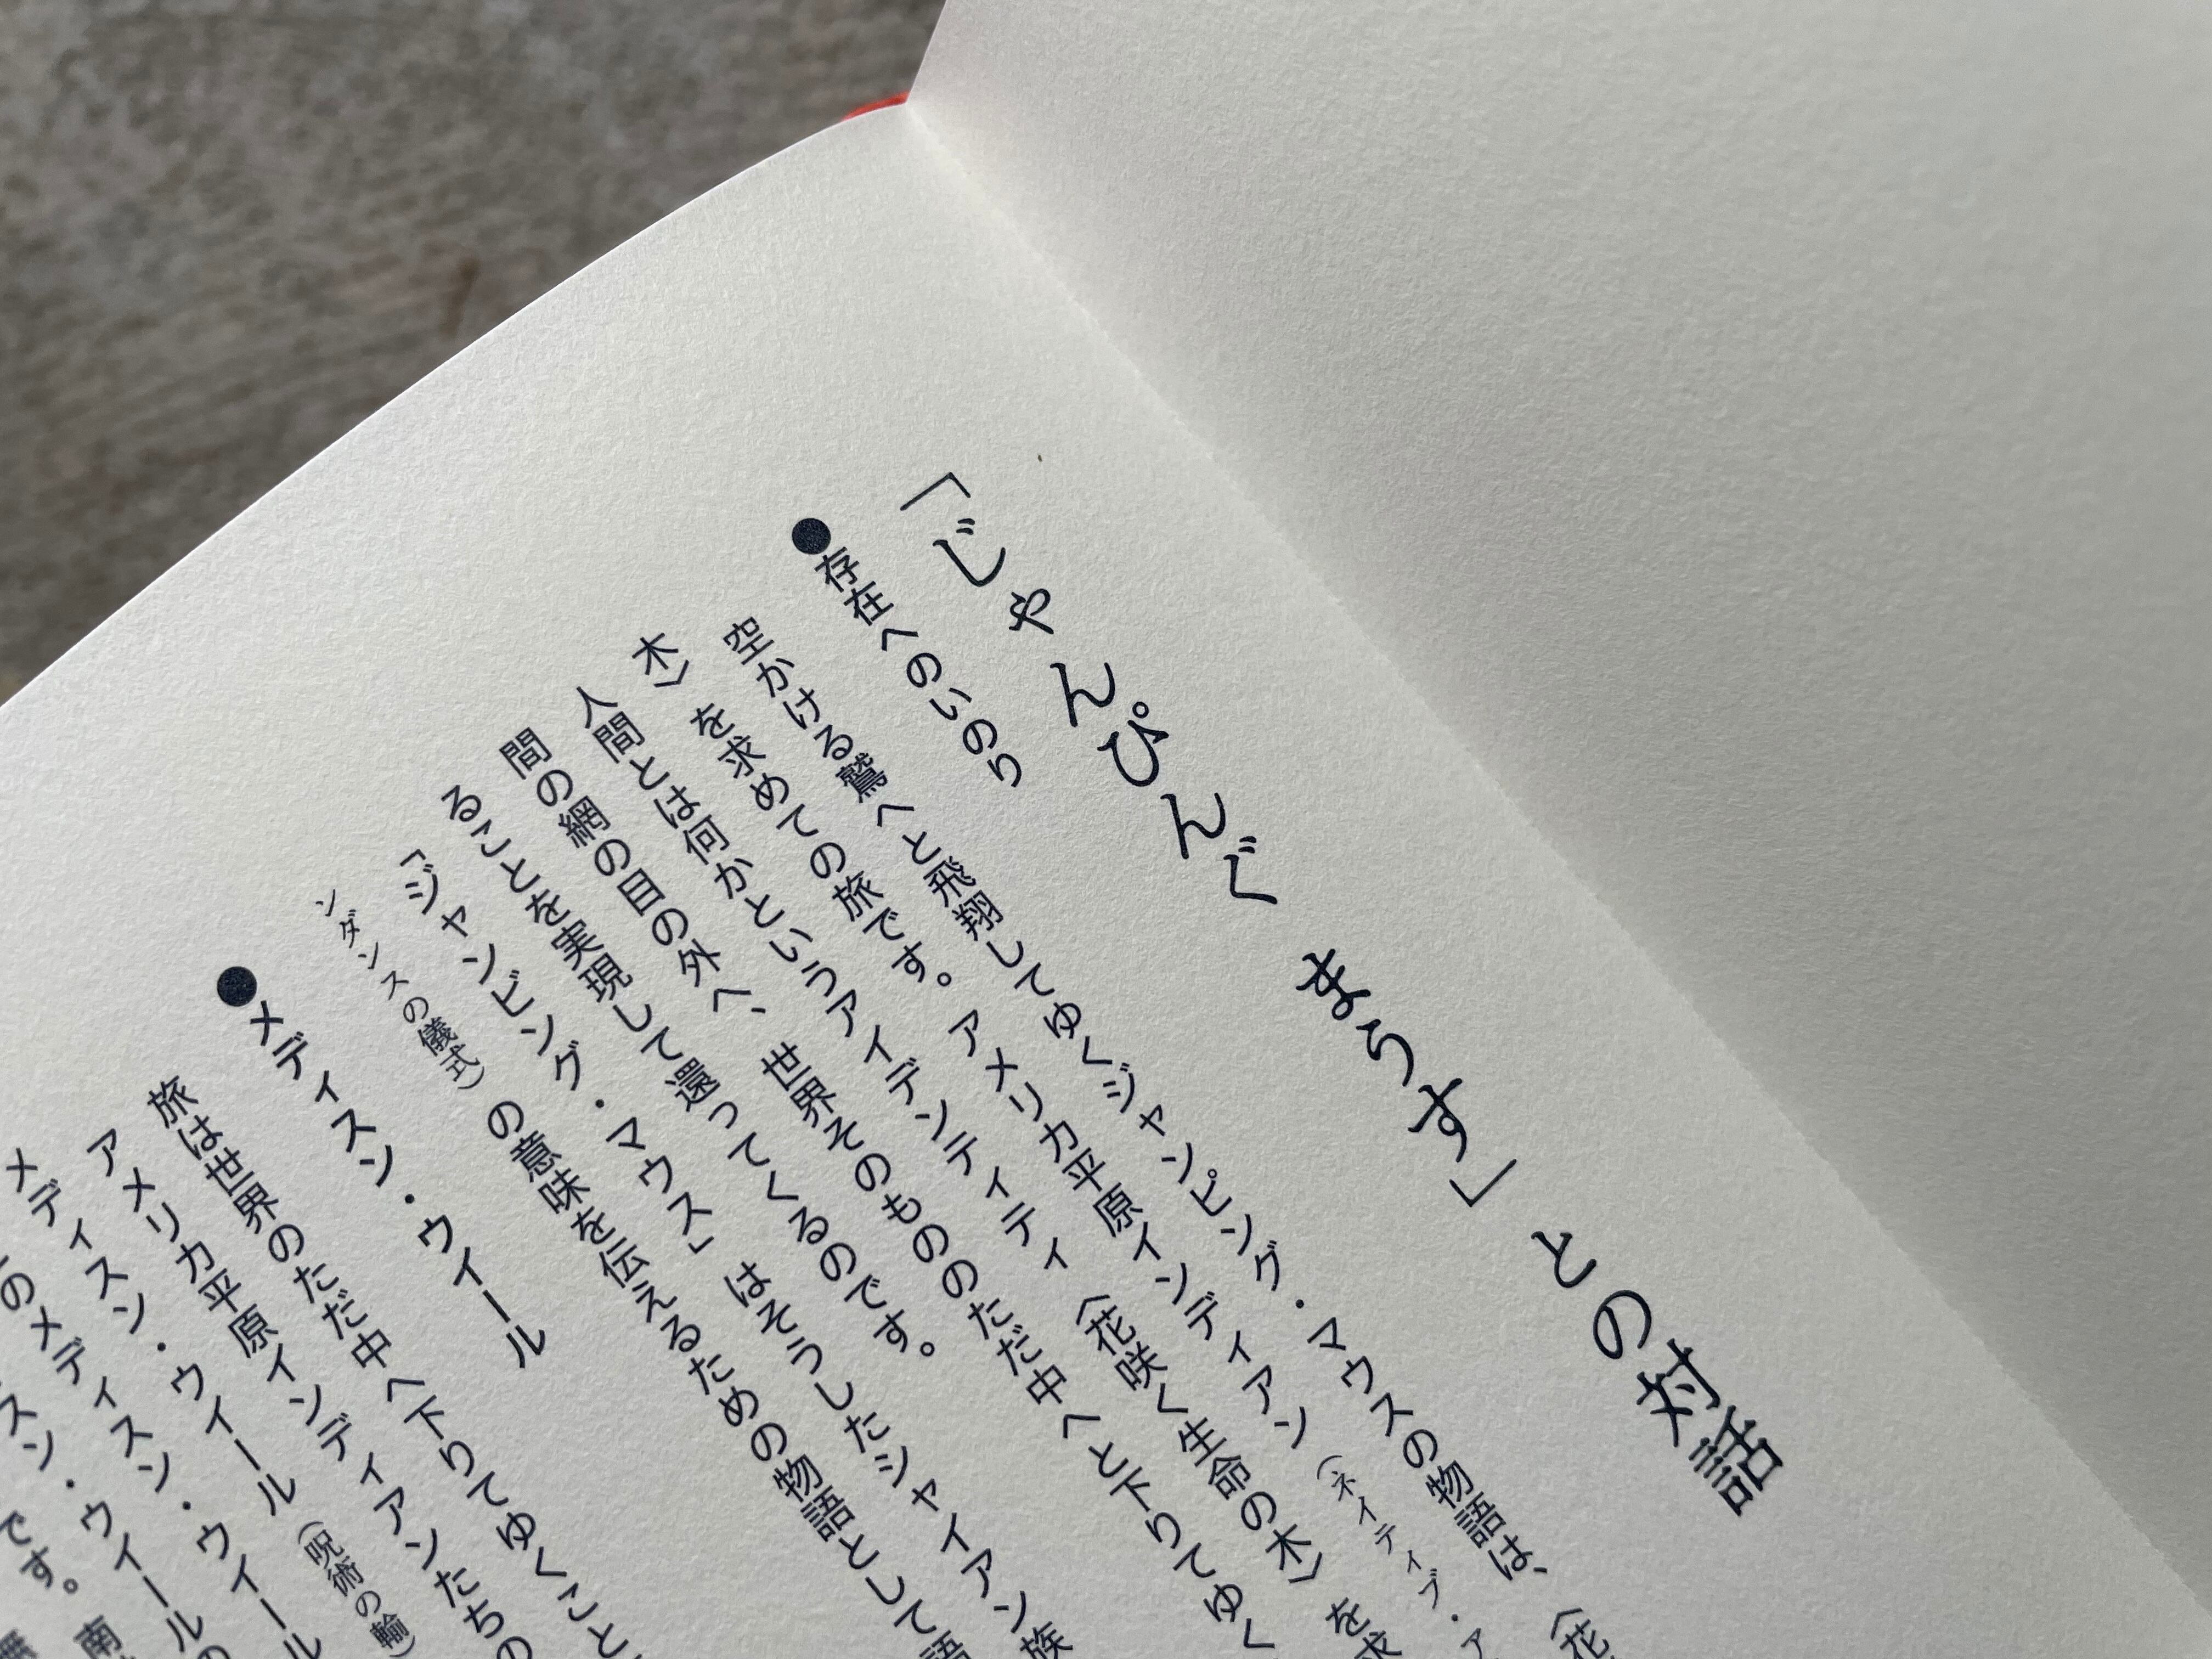 「じゃんぴんぐ まうす」との対話
●存在へのいのり
空かける鷲へと飛翔してゆくジャンピング・マウスの物語は、〈花
木〉を求めての旅です。アメリカ平原インディアン（ネイティブ・ア
人間とは何かというアイデンティティ〈花咲く生命の木〉を求
間の網の目の外へ、世界そのもののただ中へと下りてゆく
ることを実現して還ってくるのです。
「ジャンピング・マウス」はそうしたシャイアン族
ンダンスの儀式）の意味を伝えるための物語として語
●メディスン・ウィール
旅は世界のただ中へ下りてゆくこと
アメリカ平原インディアンたちの
メディスン・ウィール（呪術の輪）
のメディスン・ウィール
スン・ウィールの
です。南